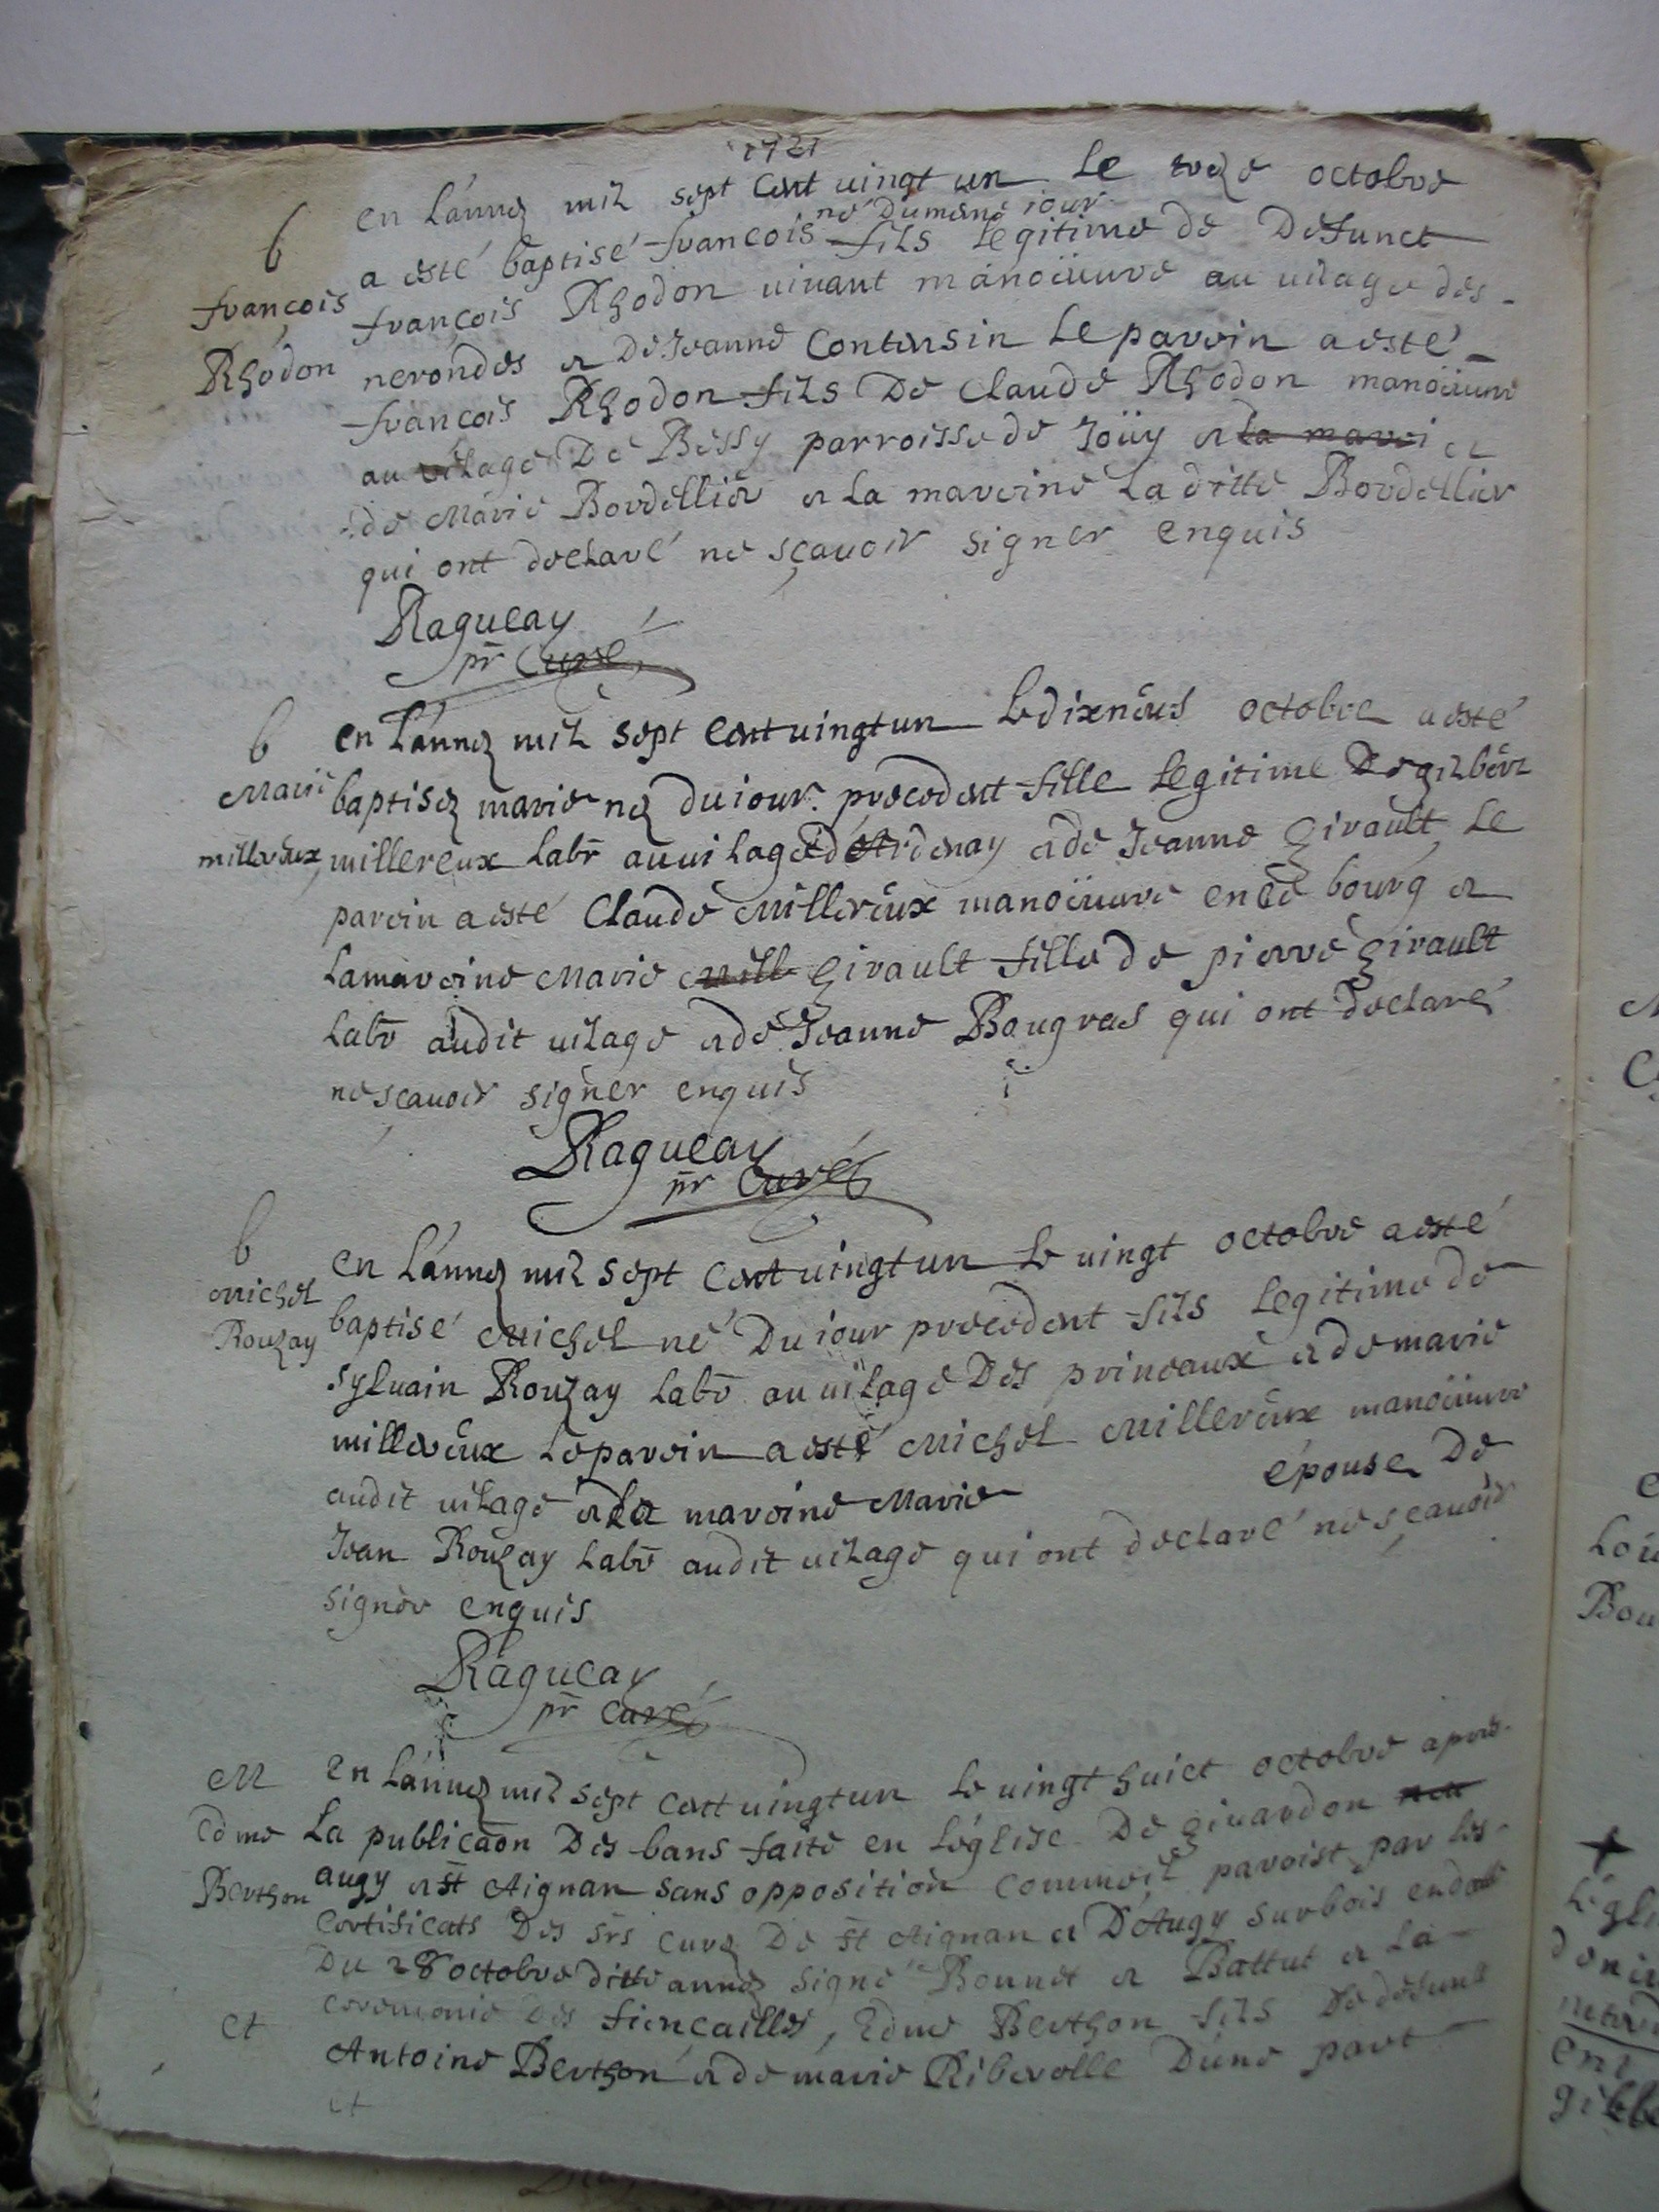 1721
en l'année mil sept cent uingt un le
octobre
né du mesme iour
b
a esté baptisé francois fils legitime de defunct
francois
francois Rhodon uiuant manoeuure au uilage des
Rhodon
nerondes et de Jeanne Contensin le parein a esté
francois Rhodon fils de Claude Rhodon manoeuure
au uilage de Bessy parroisse de Joüy et la marei et
de Marie Bordellier et la mareine la ditte Bordellier
qui ont declaré ne sçauoir signer enquis
Ragueay
pr Curé
b
en l'année mil sept cent uingt un le dixneuf octobre a esté
Marie
baptisée marie née du iour precedent fille legitime de gilbert
millereux
millereux labr au uilage d'Ardenay et de Jeanne Girault le
parein a esté Claude Millereux manoeuure en ce bourg et
la mareine Marie Mill Girault fille de pierre Girault
labr audit uilage et de Jeanne Bougras qui ont declaré
ne scauoir signer enquis
Ragueay
pr Curé
b
en l'année mil sept cent uingt un le uingt octobre a esté
Michel
Rouzay
baptisé Michel né du iour precedent fils legitime de
syluain Rouzay labr au uilage des prineaux et de marie
millereux le parein a esté Michel Millereux manoeuure
audit uilage et la mareine Marie epouse de
Jean Rouzay labr audit uilage qui ont declaré ne sçauoir
signer enquis
Ragueay
pr Curé
M
en l'année mil sept cent uingt un le uingt huict octobre apres
Edme
la publicaon des bans faite en l'église de Giuardon
Berthon
augy et st Aignan sans opposition comme il paroist par les
certificats des srs curez de st Aignan et d'Augy sur bois en date
du 28 octobre ditte année signé Bonnet et Battut et la
et
ceremonie des fiencailles, Edme Berthon fils de defunt
Antoine Berthon et de marie Riberolle d'une part
et